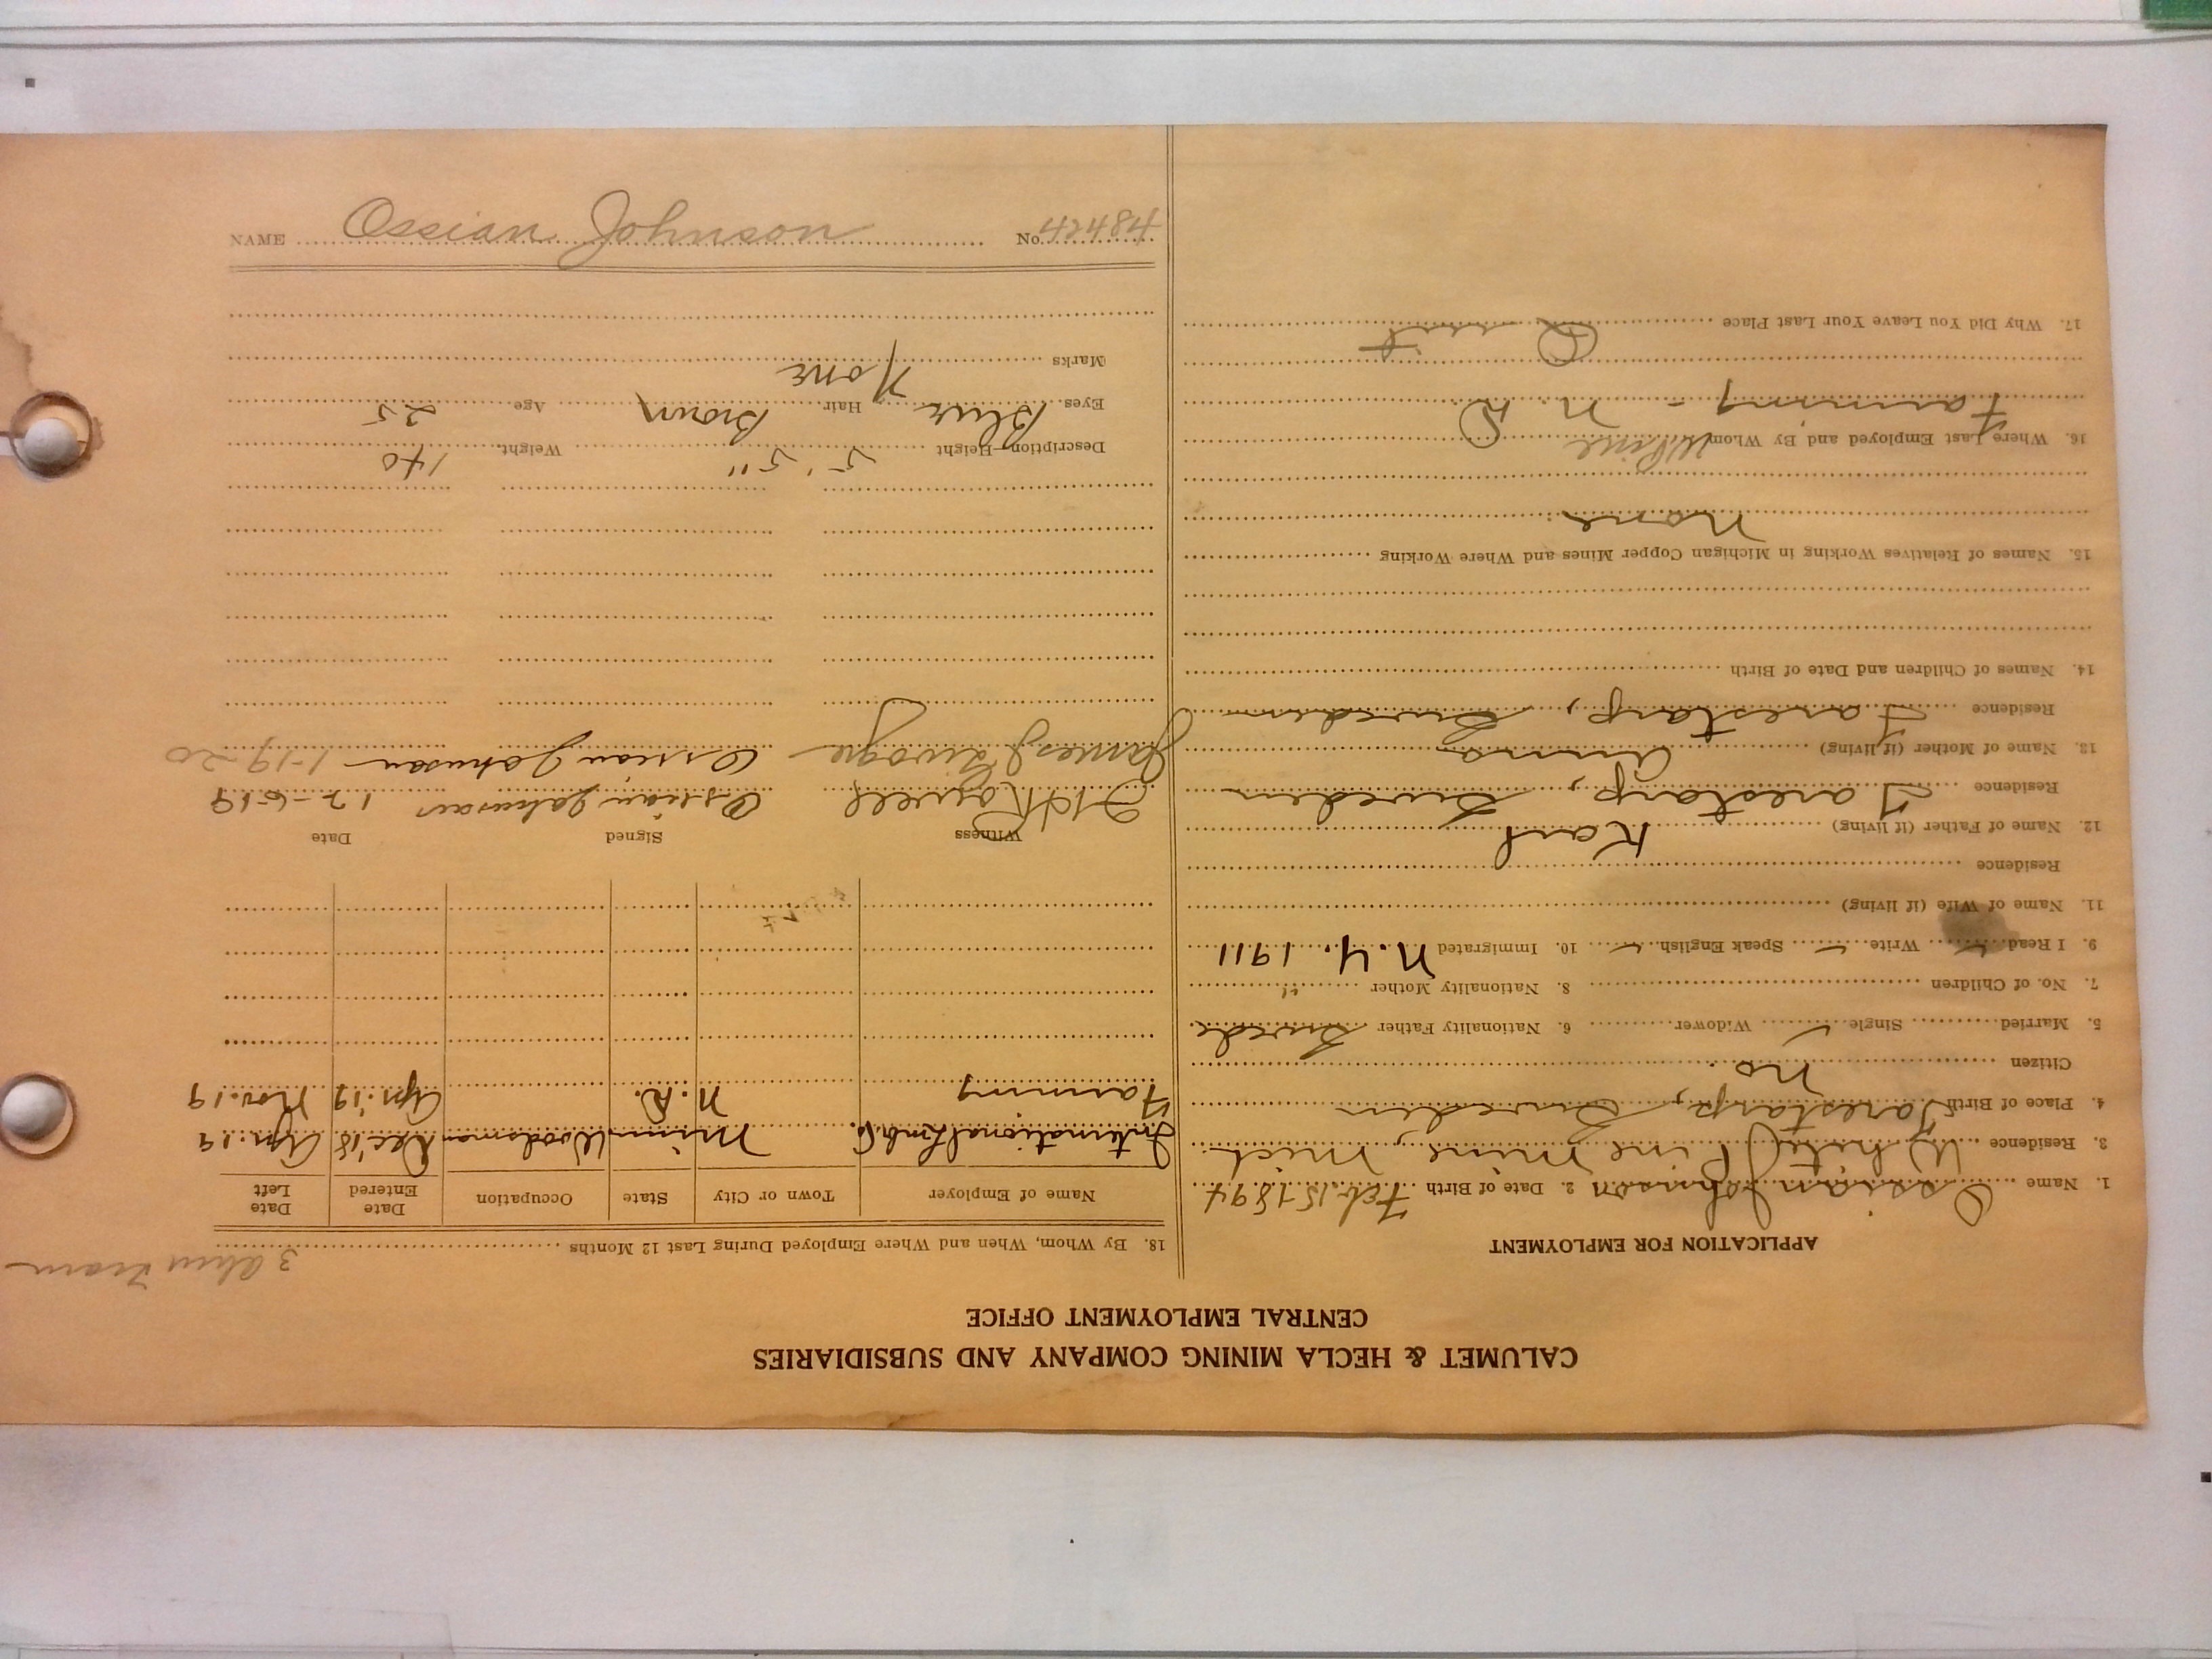 CALUMET & HECLA MINING COMPANY AND SUBSIDIARIES
CENTRAL EMPLOYMENT OFFICE
APPLICATION FOR EMPLOYMENT
1. Name Ossian Johnson 2. Date of Birth Feb. 15 1894
3. Residence White Pine Mine, Mich
4. Place of Birth Farestarp, Sweden
Citizen no.
5. Married Single ✓ Widower 6. Nationality Father Swede
7. No. of Children 8. Nationality Mother "
9. I Read ✓ Write ✓ Speak English ✓ 10. Immigrated N.Y. 1911
11. Name of Wife (if living)
Residence
12. Name of Father (if living) Karl
Residence Farestarp, Sweden
13. Name of Mother (if living) Anna
Residence Farestarp, Sweden
14. Names of Children and Date of Birth
15. Names of Relatives Working in Michigan Copper Mines and Where Working
None
16. Where Last Employed and By Whom W Pine
Farming - N. D
17. Why Did You Leave Your Last Place
Quit
18. By Whom, When and Where Employed During Last 12 Months
Name of Employer Town or City State Occupation Date Entered Date Left
International Lmb. Co. Minn Woodsman Dec '18 Apr. 19
Farming N. D. Apr. '19 Nov. 19
Witness Signed Date
Rowell Ossian Johnson 12-6-19
James Ossian Johnson 1-19-20
Description—Height 5' 5" Weight 140
Eyes Blue Hair Brown Age 25
Marks None
NAME Ossian Johnson No. 42484